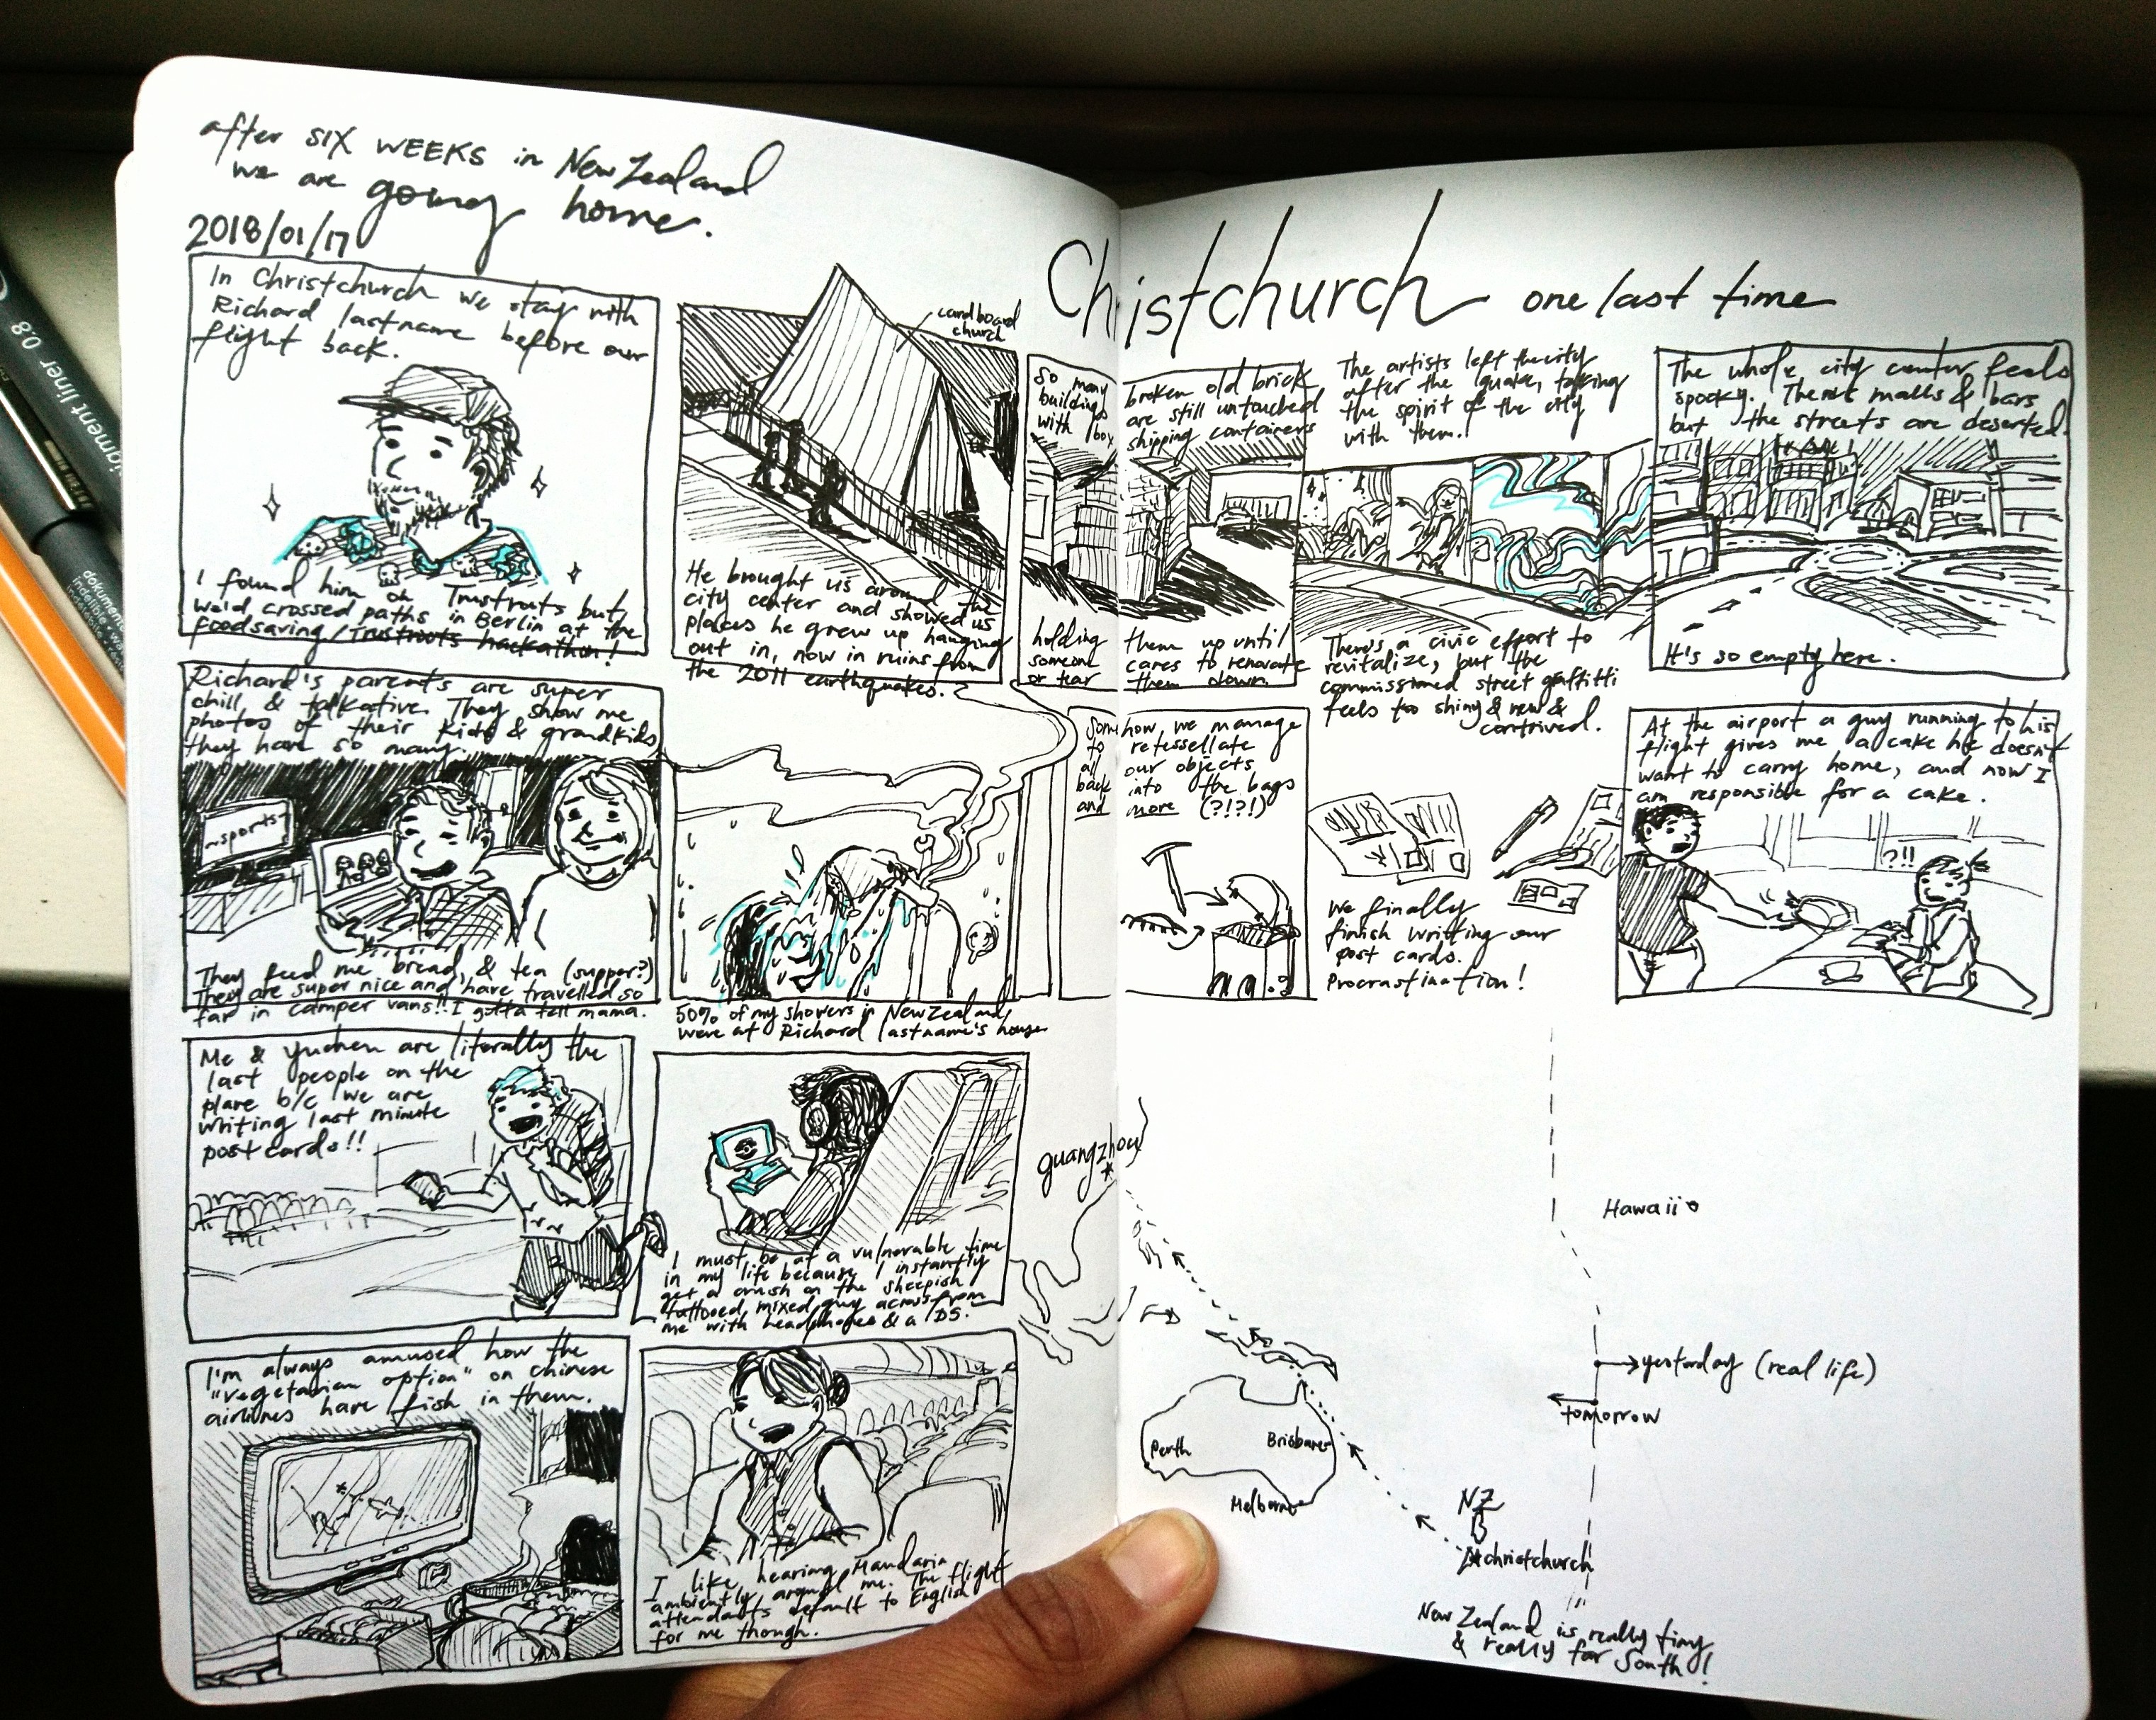 after SIX WEEKS in New Zealand
we are going home.
2018/01/17
Christchurch one last time
In Christchurch we stay with
Richard lastname before our
flight back.
I found him on Trustroots but
we'd crossed paths in Berlin at the
foodsaving/Trustroots hackathon!
cardboard
church
He brought us around the
city center and showed us
places he grew up hanging
out in, now in ruins from
the 2011 earthquakes.
So many broken old brick
buildings are still untouched
with box shipping containers
holding them up until
someone cares to renovate
or tear them down.
The artists left the city
after the quake, taking
the spirit of the city
with them.
There's a civic effort to
revitalize, but the
commissioned street gaffitti
feels too shiny & new &
contrived.
The whole city center feels
spooky. There malls & bars
but the streets are deserted.
It's so empty here.
Richard's parents are super
chill & talkative. They show me
photos of their kids & grandkids,
they have so many.
~sports~
They feed me bread & tea (supper?)
They are super nice and have travelled so
far in camper vans!! I gotta tell mama.
50% of my showers in New Zealand
were at Richard lastname's house
Somehow we manage
to retessellate
all our objects
back into the bags
and more (?!?!)
We finally
finish writting our
post cards.
Procrastination!
At the airport a guy running to his
flight gives me a cake he doesn't
want to carry home, and now I
am responsible for a cake.
?!!
Me & Yuchen are literally the
last people on the
plane b/c we are
writing last minute
post cards!!
I must be at a vulnerable time
in my life because I instantly
get a crush on the sheepish
tattooed mixed guy across from
me with headphones & a DS.
I'm always amused how the
"vegetarian option" on chinese
airlines have fish in them.
I like hearing Mandarin
ambiently around me. The flight
attendants default to English
for me though.
guangzhou
Hawaii
yesterday (real life)
tomorrow
Perth
Brisbane
Melbourne
NZ
christchurch
New Zealand is really tiny
& really far South!
pigment liner 0.8